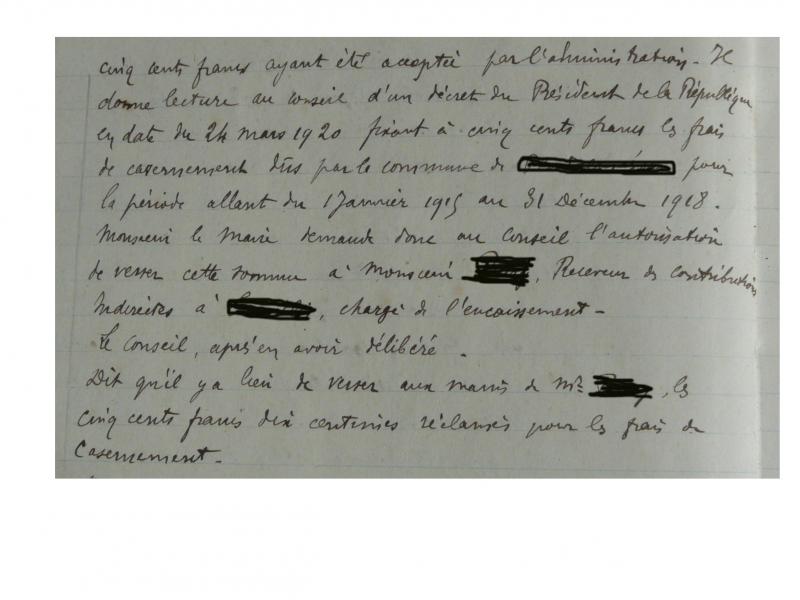 cinq cents francs ayant été acceptée par l'administration - Il
donne lecture au conseil d'un décret du Président de la République
en date du 24 mars 1920 fixant à cinq cents francs les frais
de casernement dûs par la commune de pour
la période allant du 1 Janvier 1915 au 31 Décembre 1918.
Monsieur le Maire demande donc au Conseil l'autorisation
de verser cette somme à Monsieur , Receveur des Contributions
Indirectes à , chargé de l'encaissement -
Le Conseil, après en avoir délibéré.
Dit qu'il y a lieu de verser aux mains de Mr , les
cinq cents francs dix centimes réclamés pour les frais de
Casernement -